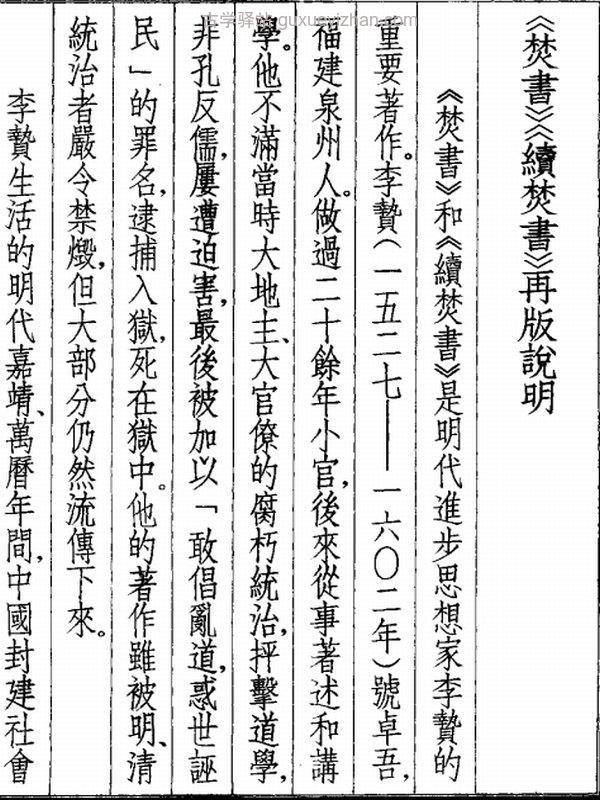 古学驿站 guxueyizhan.com
《焚書》《續焚書》再版說明
《焚書》和《續焚書》是明代進步思想家李贄的
重要著作。李贄(一五二七——一六〇二年)號卓吾,
福建泉州人。做過二十餘年小官,後來從事著述和講
學。他不滿當時大地主、大官僚的腐朽統治,抨擊道學,
非孔反儒,屢遭迫害,最後被加以「敢倡亂道,惑世誣
民」的罪名,逮捕入獄,死在獄中。他的著作雖被明、清
統治者嚴令禁燬,但大部分仍然流傳下來。
李贄生活的明代嘉靖、萬曆年間,中國封建社會